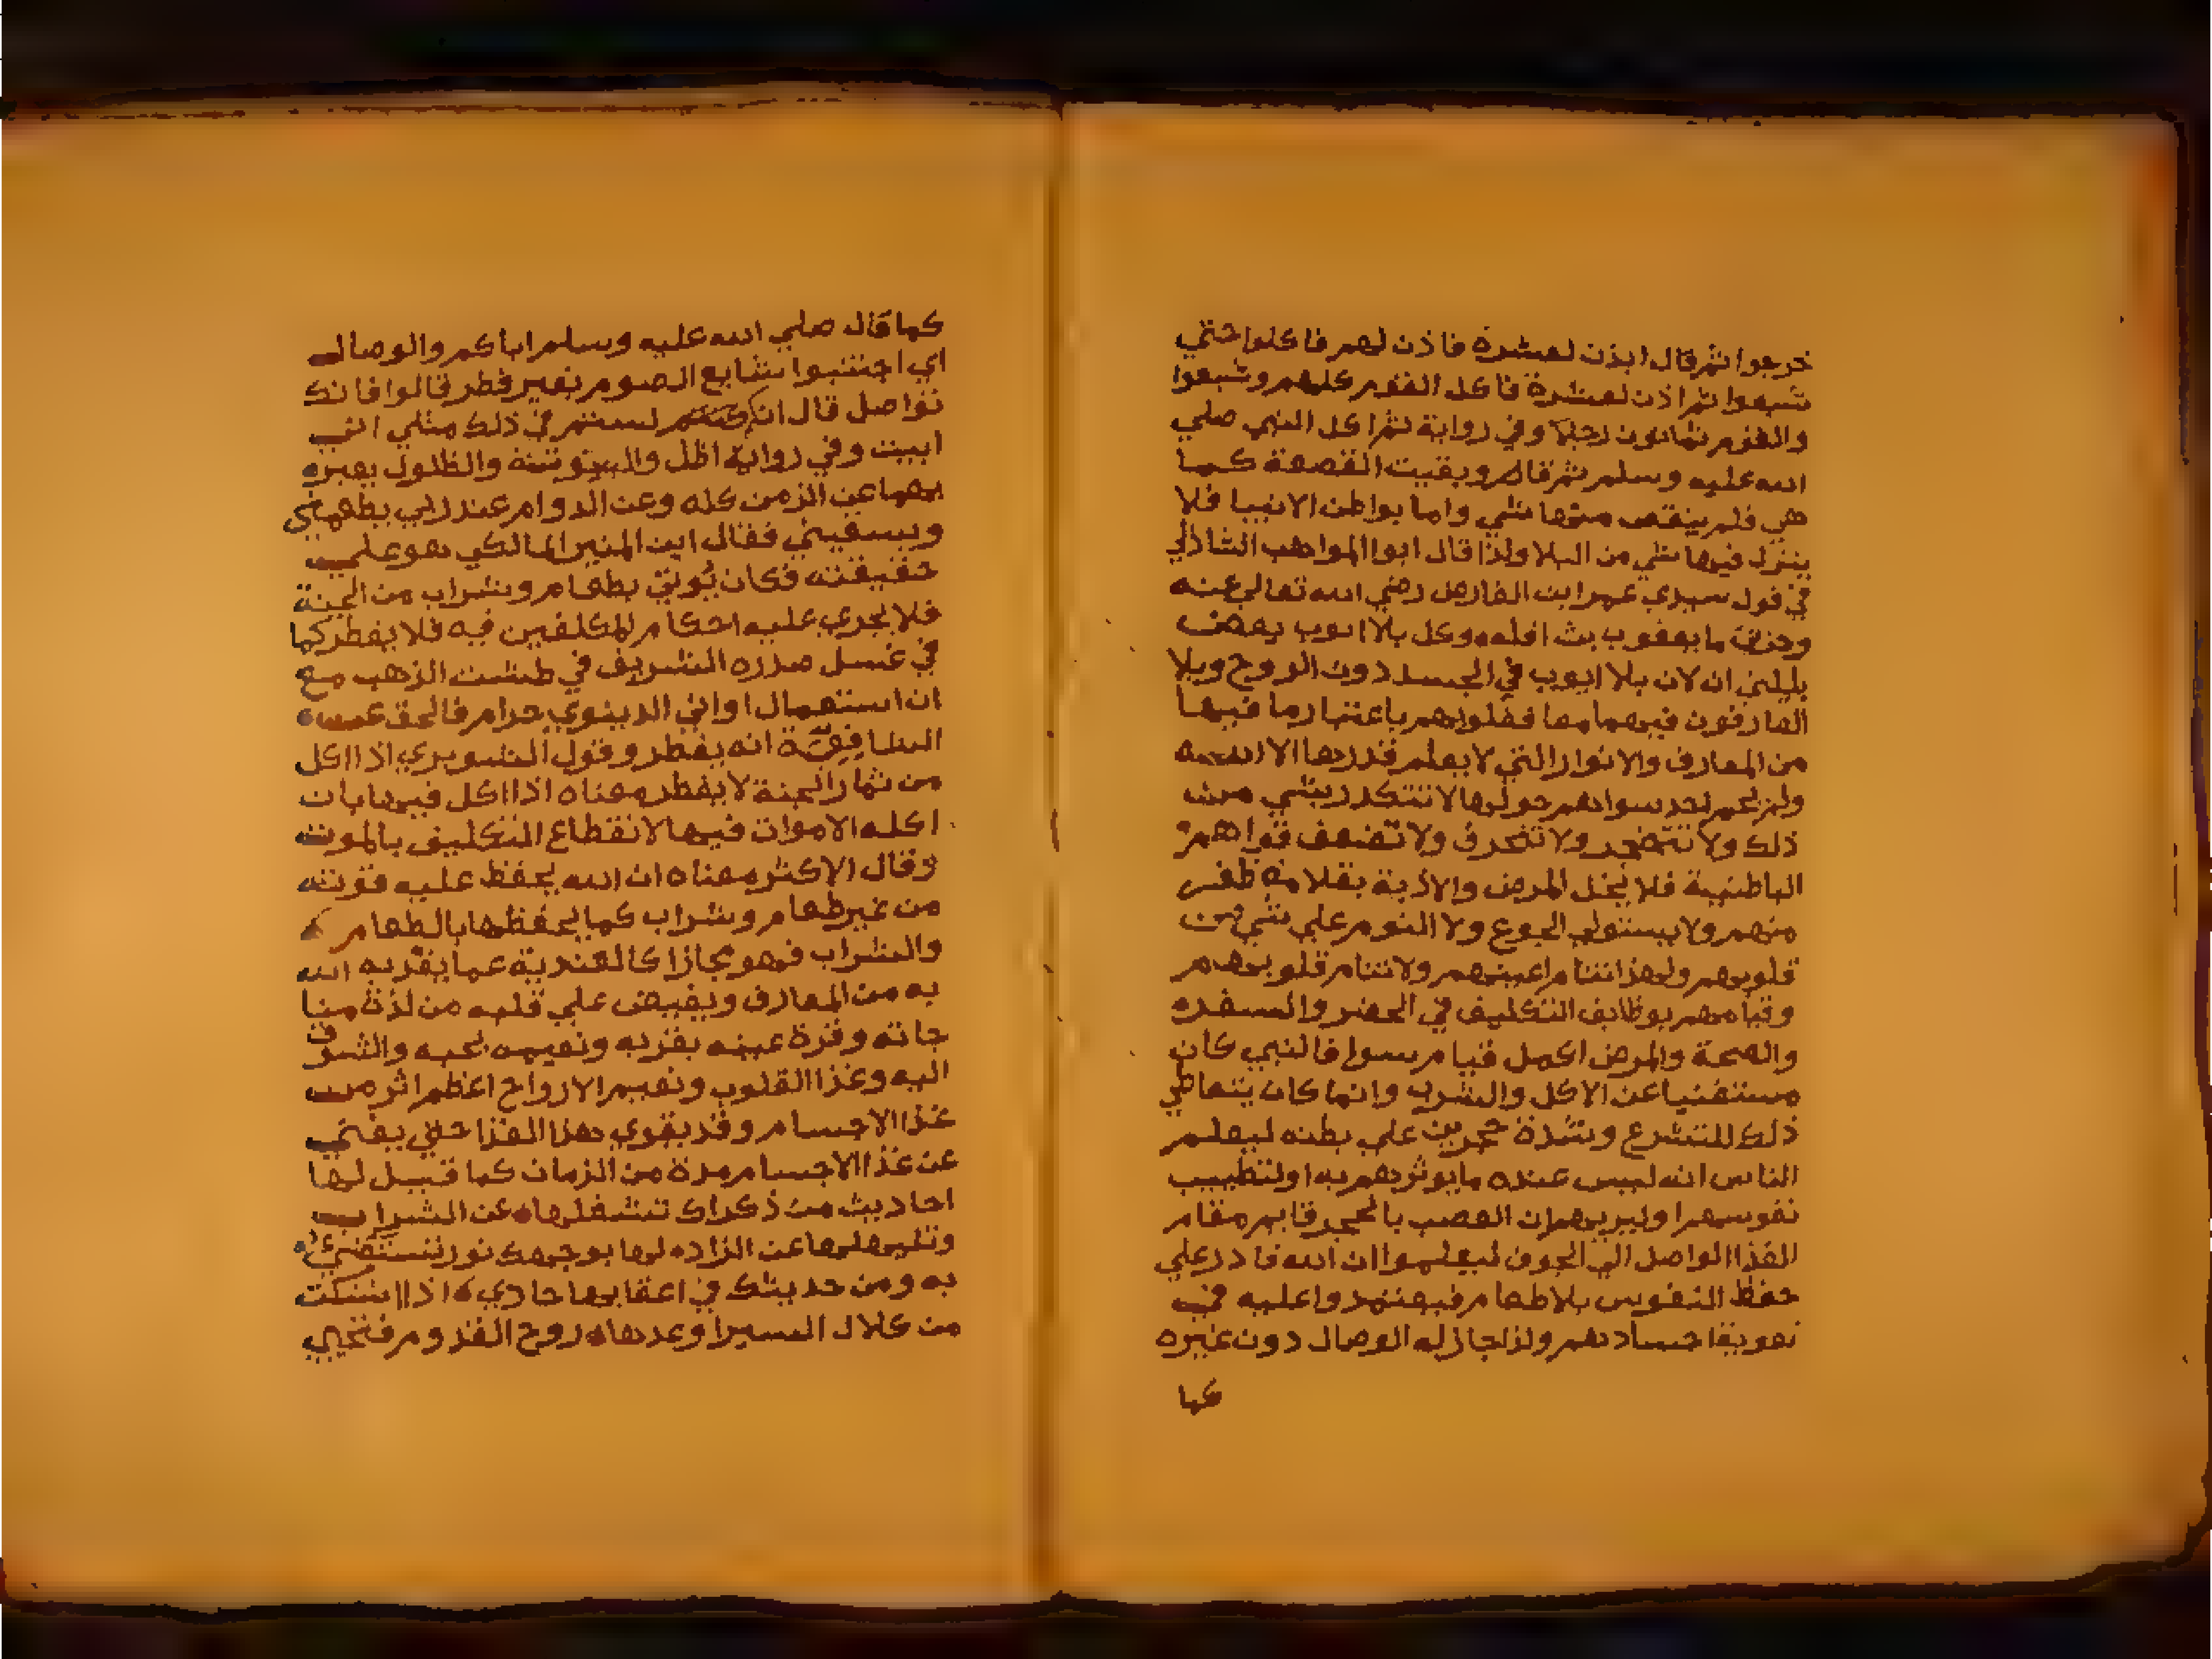 خرجوا ثم قال ايذن لعشرة فاذن لهم فاكلوا حتي
شبعوا ثم اذن لعشرة فاكل القوم كلهم وشبعوا
والقوم ثمانون رجلا وفي رواية ثم اكل النبي صلي
الله عليه وسلم ثم قال وبقيت القصعة كما
هي فلم ينقص منها شي واما بواطن الانبيا فلا
ينزل فيها شي من البلا ولذا قال ابوا المواهب الشاذلي
في قول سيدي عمر ابن الفارض رضي الله تعالي عنه
وحزني ما يعقوب بث اقله وكل بلا ايوب بعض
بليتي ان لان بلا ايوب في الجسد دون الروح وبلا
العارفون فيهما معا فقلوبهم باعتبار ما فيها
من المعارف والانوار التي لا يعلم قدرها الا الله
سواهم حولها لا تتكدر بشي من
ذلك ولا تتضجر ولا تنحرف ولا تضعف قواهم
الباطنية فلا يخل المرض والاذية بقلامة ظفر
منهم ولا يستولي الجوع ولا النوم علي شي من
قلوبهم ولهذا تنام اعينهم ولا تنام قلوبهم
وقيامهم بوظايف التكليف في الحضر والسفر
والصحة والمرض اكمل قيام سوا فالنبي كان
مستغنيا عن الاكل والشرب وانما كان يتعاطي
ذلك للتشرع وشدة حجرين علي بطنه ليعلم
الناس انه ليس عنده ما يوثرهم به او لتطييب
نفوسهم او ليريهم ان العصب بالحجر قايم مقام
الغذا الواصل الي الجوف ليعلموا ان الله قادر علي
حفظ النفوس بلا طعام فيعتمدوا عليه في
تعويق اجسادهم ولذا جاز له الوصال دون غيره
كما
كما قال صلي الله عليه وسلم اياكم والوصال
اي اجتنبوا تتابع الصوم بغير فطر قالوا فانك
تواصل قال انكم لستم في ذلك مثلي اني
ابيت وفي رواية اظل والبيتوتتة والظلول يعبر
بهما عن الزمن كله وعن الدوام عند ربي يطعمني
ويسقيني فقال ابن المنير المالكي هو علي
حقيقته فكان يوتي بطعام وشراب من الجنة
فلا يجري عليه احكام المكلفين فيه فلا يفطر كما
في غسل صدره الشريف في طشت الذهب مع
ان استعمال اواني الدينوي حرام فالحق عند
الشافعية انه يفطر وقول الشوبري اذا اكل
من ثمار الجنة لا يفطر معناه اذا اكل فيها بان
اكله الاموات فيها لانقطاع التكليف بالموت
وقال الاكثر معناه ان الله يحفظ عليه قوته
من غير طعام وشراب كما يحفظها بالطعام
والشراب فهو مجازا كالعندية عما يقربه الله
به من المعارف ويفيض علي قلبه من لذة منا
جاته وقرة عينه بقربه ونعيمه بحبه والشوق
اليه وغذا القلوب ونعيم الارواح اعظم اثر من
غذا الاجسام وقد يقوي هذا الغذا حتي يغني
عن غذا الاجسام مدة من الزمان كما قيل لها
احاديث من ذكراك تشغلها عن الشراب
وتلهيها عن الزاد لها بوجهك نور تستضيئ
به ومن حديثك في اعقابها حادي اذا اشتكت
من كلال السير اوعدها روح القدوم فتحيي